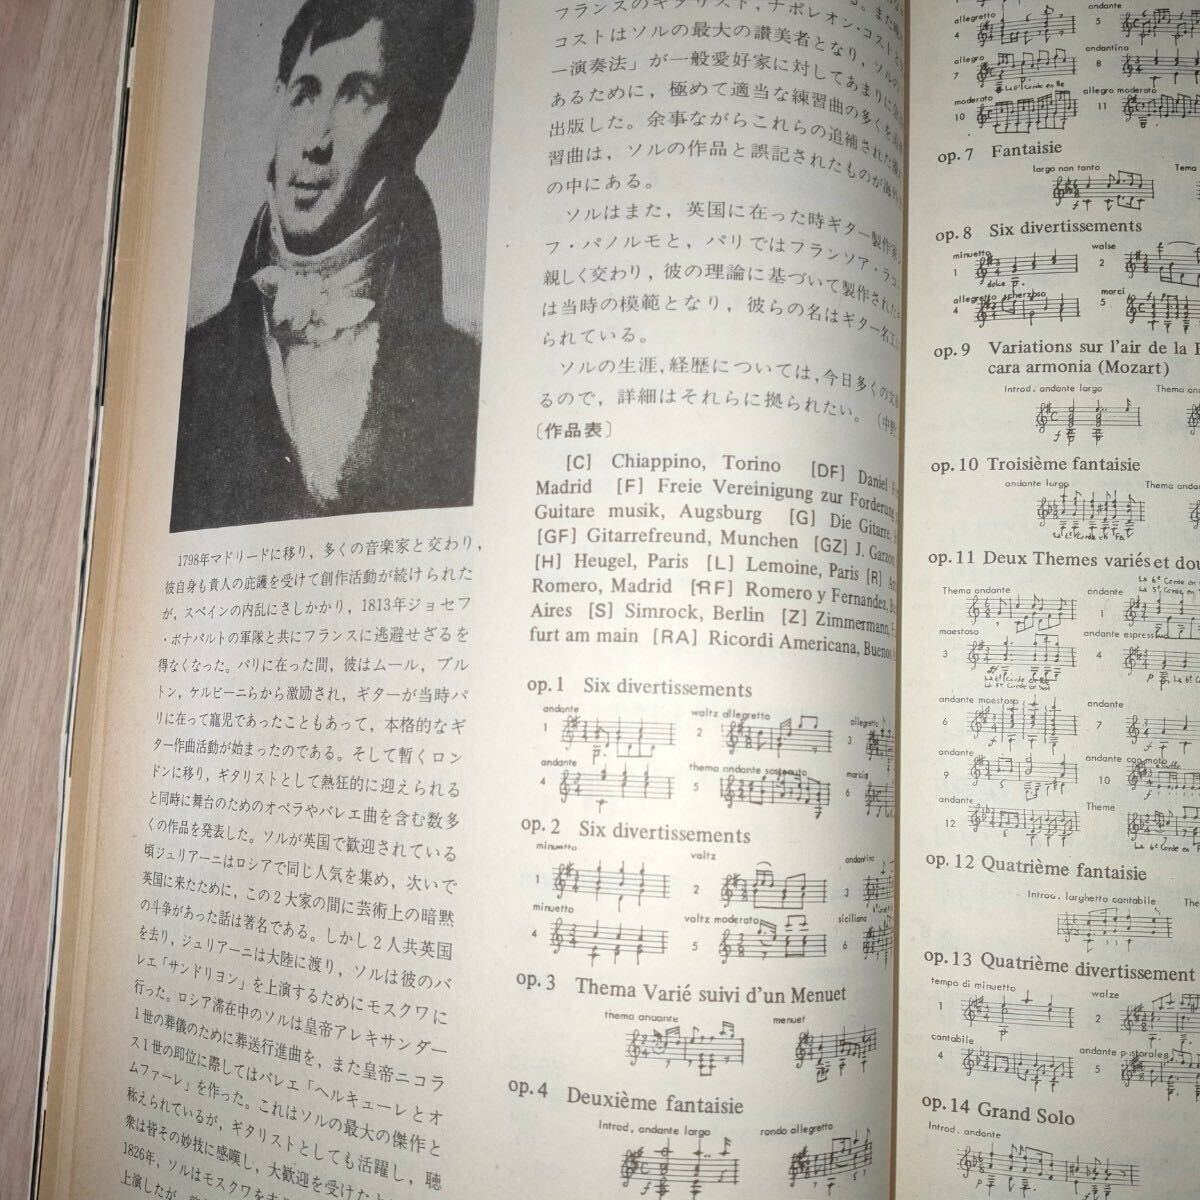 1798年マドリードに移り，多くの音楽家と交わり，
彼自身も貴人の庇護を受けて創作活動が続けられた
が，スペインの内乱にさしかかり，1813年ジョセフ
・ボナパルトの軍隊と共にフランスに逃避せざるを
得なくなった。パリに在った間，彼はムール，ブル
トン，ケルビーニらから激励され，ギターが当時パ
リに在って寵児であったこともあって，本格的なギ
ター作曲活動が始まったのである。そして暫くロン
ドンに移り，ギタリストとして熱狂的に迎えられる
と同時に舞台のためのオペラやバレエ曲を含む数多
くの作品を発表した。ソルが英国で歓迎されている
頃ジュリアーニはロシアで同じ人気を集め，次いで
英国に来たために，この2大家の間に芸術上の暗黙
の斗争があった話は著名である。しかし2人共英国
を去り，ジュリアーニは大陸に渡り，ソルは彼のバ
レエ「サンドリヨン」を上演するためにモスクワに
行った。ロシア滞在中のソルは皇帝アレキサンダー
1世の葬儀のために葬送行進曲を，また皇帝ニコラ
ス1世の即位に際してはバレエ「ヘルキューレとオ
ムファーレ」を作った。これはソルの最大の傑作と
称えられているが，ギタリストとしても活躍し，聴
衆は皆その妙技に感嘆し，大歓迎を受けた
1826年，ソルはモスクワを
上演したが，
フランスのギタリスト，ナポレオン・コスト
コストはソルの最大の讃美者となり，ソルの
ー演奏法」が一般愛好家に対してあまりに
あるために，極めて適当な練習曲の多くを
出版した。余事ながらこれらの追補された
習曲は，ソルの作品と誤記されたものが海外
の中にある。
ソルはまた，英国に在った時ギター製作家
フ・パノルモと，パリではフランソア・ラコー
親しく交わり，彼の理論に基づいて製作された
は当時の模範となり，彼らの名はギター名工
られている。
ソルの生涯，経歴については，今日多くの文
るので，詳細はそれらに拠られたい。（中野
〔作品表〕
[C] Chiappino, Torino [DF] Daniel
Madrid [F] Freie Vereinigung zur Forderung
Guitare musik, Augsburg [G] Die Gitarre,
[GF] Gitarrefreund, Munchen [GZ] J. Garzon
[H] Heugel, Paris [L] Lemoine, Paris [R]
Romero, Madrid [RF] Romero y Fernandez,
Aires [S] Simrock, Berlin [Z] Zimmermann,
furt am main [RA] Ricordi Americana, Buenos
op.1 Six divertissements
andante waltz allegretto allegretto
1 2 3
andante thema andante sostenuto marcia
4 5 6
op.2 Six divertissements
minuetto valtz andantino
1 2 3
minuetto valtz moderato siciliana
4 5 6
op.3 Thema Varié suivi d'un Menuet
thema andante menuet
op.4 Deuxième fantaisie
Introd. andante largo rondo allegretto
allegretto andante
4 5
allegro andantino
7 8
moderato allegro moderato
10 11
op.7 Fantaisie
largo non tanto Tema
op.8 Six divertissements
minuetto walse
1 2
dolce p.
allegretto scherzoso marci
4 5
op.9 Variations sur l'air de la
cara armonia (Mozart)
Introd. andante largo Thema
op.10 Troisième fantaisie
andante largo Thema
op.11 Deux Themes variés et dou
Thema andante
1
maestoso andante espressivo
3 4
andante maestoso andante
6 7
andante andante con moto
9 10
andante Theme
12
op.12 Quatrième fantaisie
Introd. larghetto cantabile
op.13 Quatrième divertissement
tempo di minuetto walze
1 2
cantabile andante pastorale
4 5
op.14 Grand Solo
Introd. andante